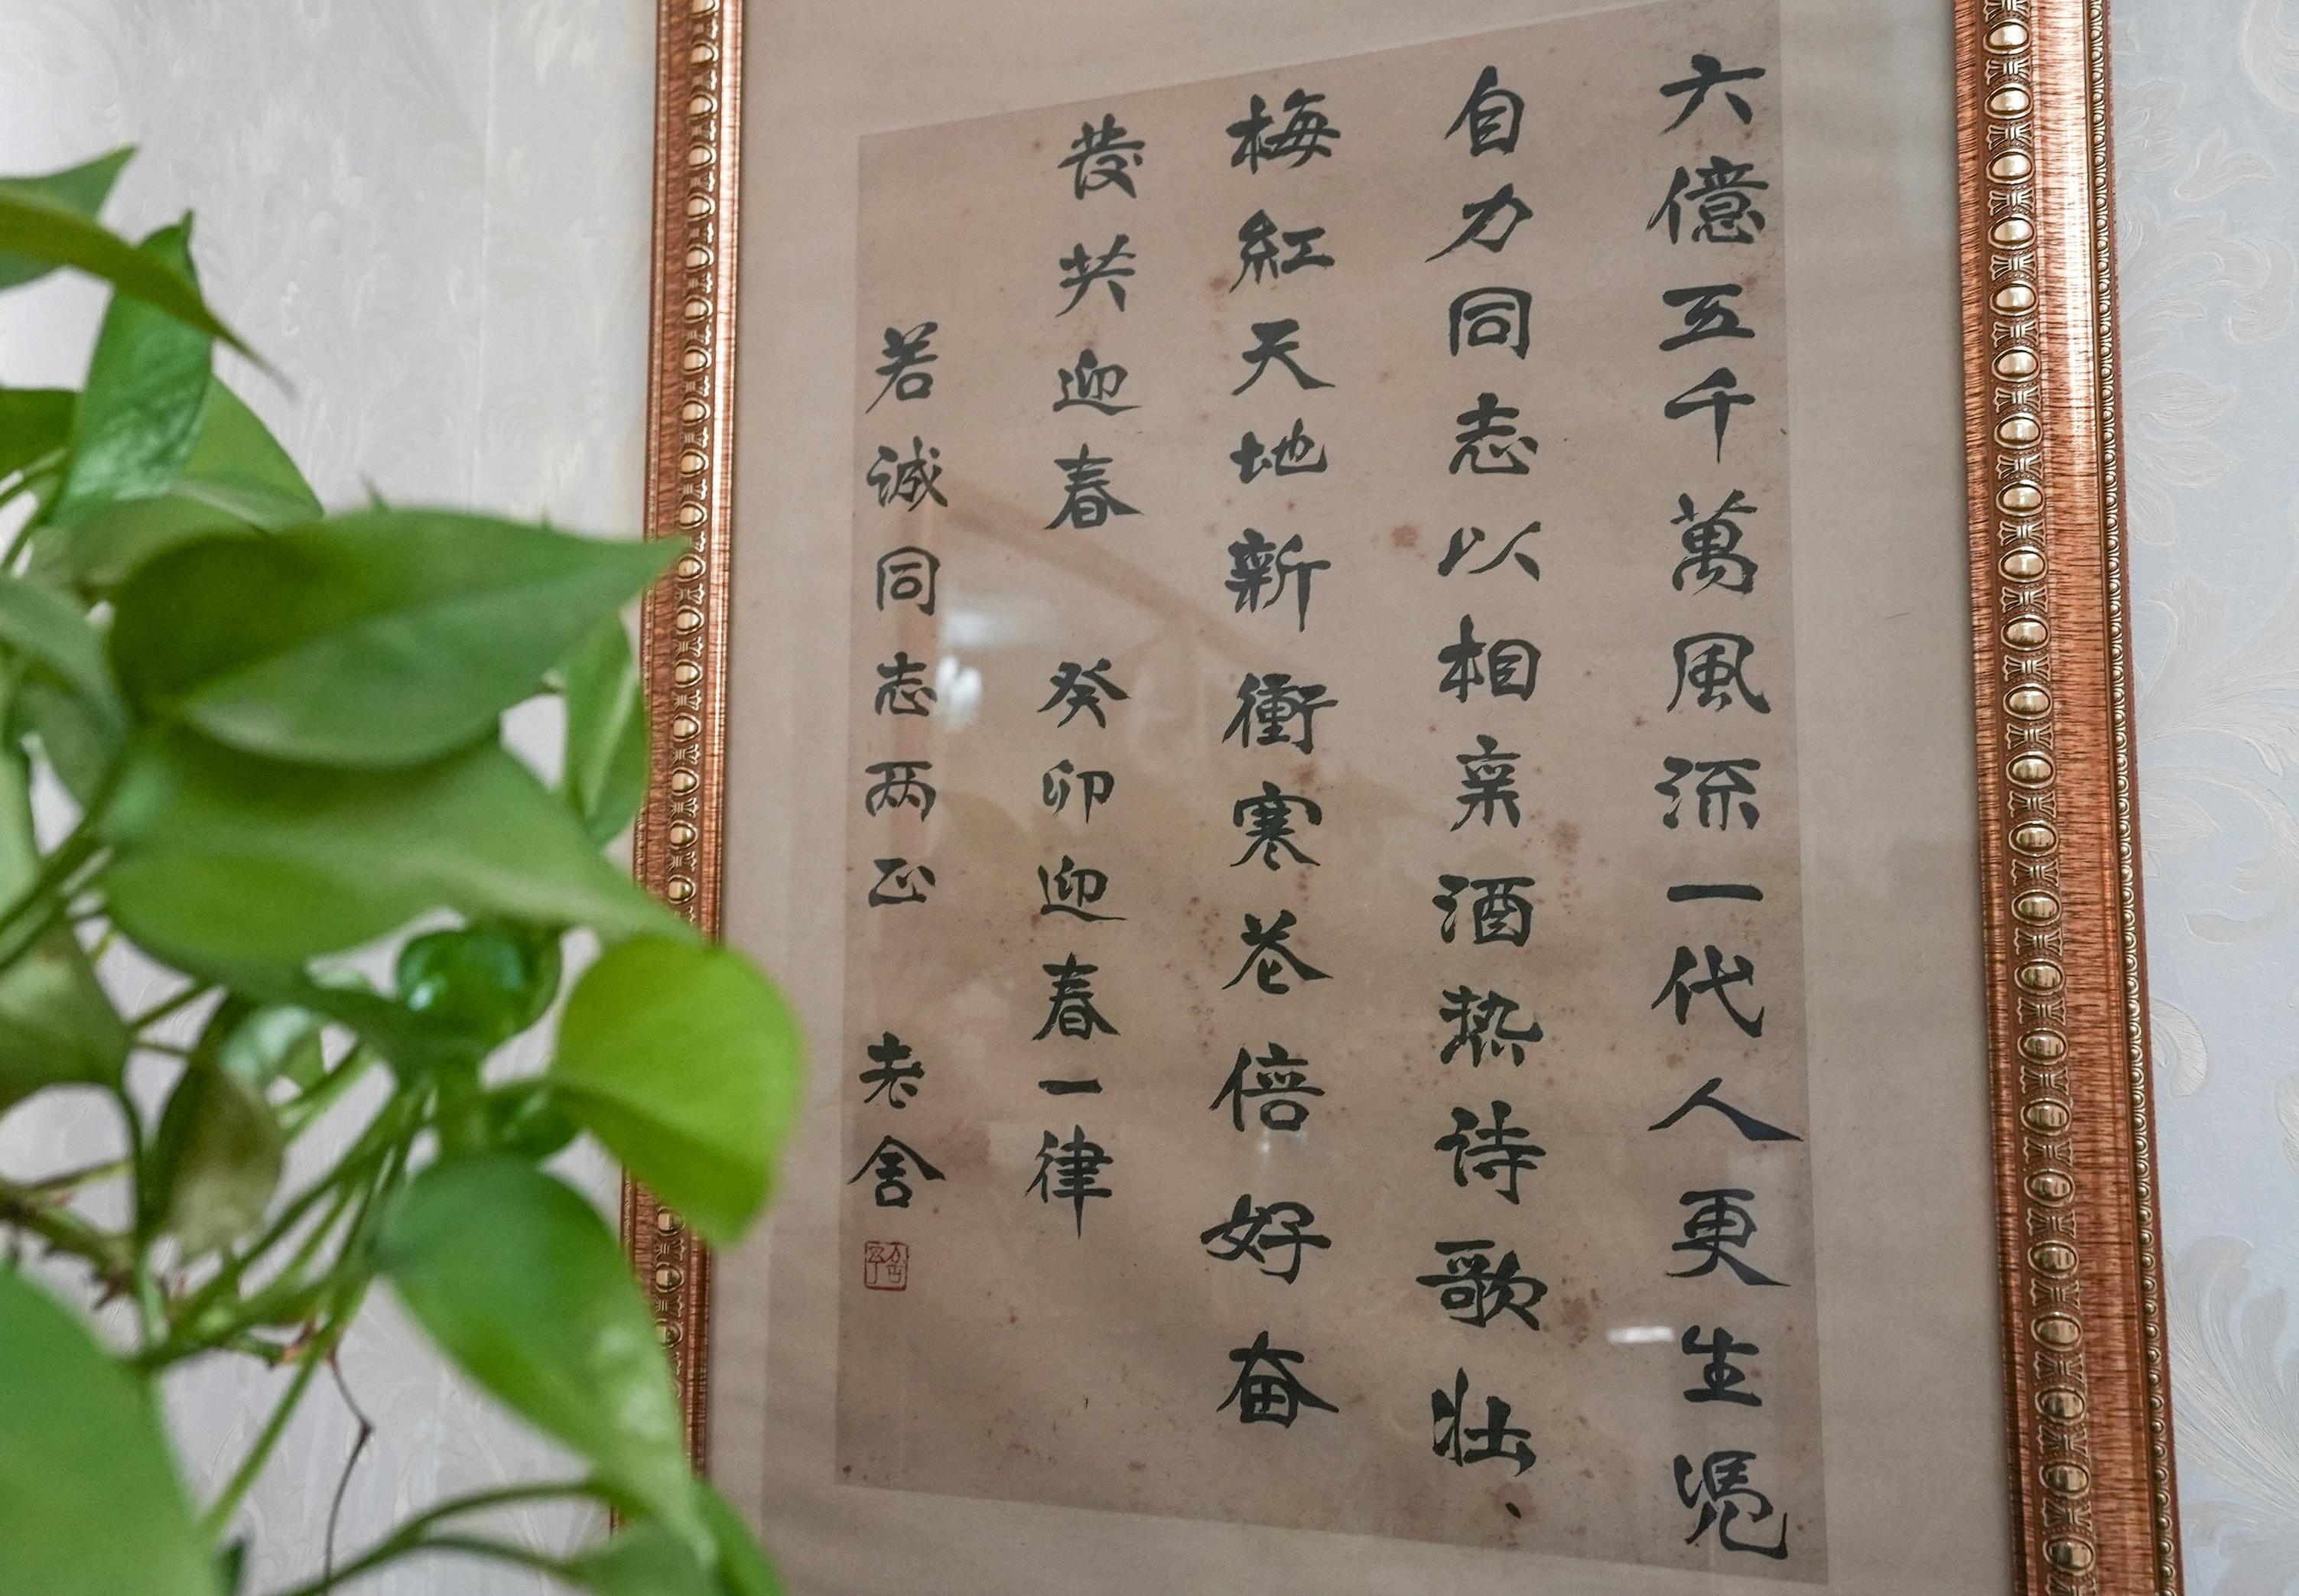 六億五千萬風流一代人更生凴
自力同志以相亲酒热诗歌壮、
梅紅天地新衝寒花倍好奋
發共迎春 癸卯迎春一律
若诚同志两正 老舍
舍予